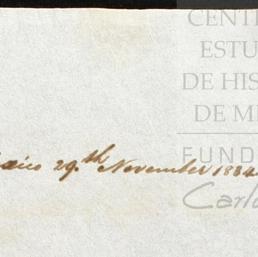 CENT
ESTU
DE HIS
DE M
FUND
Carl
xico 29.th November 1884